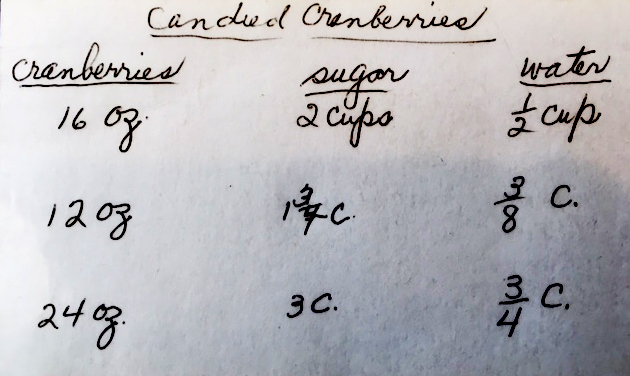 Candied Cranberries
cranberries sugar water
16 oz. 2 cups 1/2 cup
12 oz 1 3/4 C. 3/8 C.
24 oz. 3 C. 3/4 C.